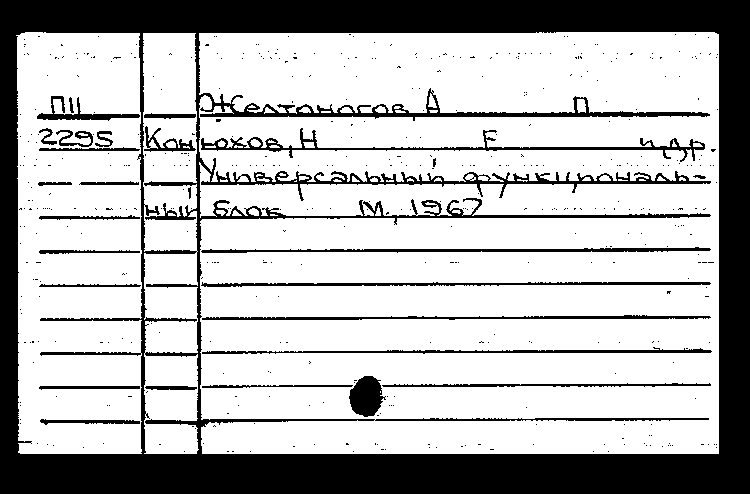 П11 Желтоногов, А П
2295 Конюхов, Н Е и др.
Универсальный функциональ-
ный блок М., 1967